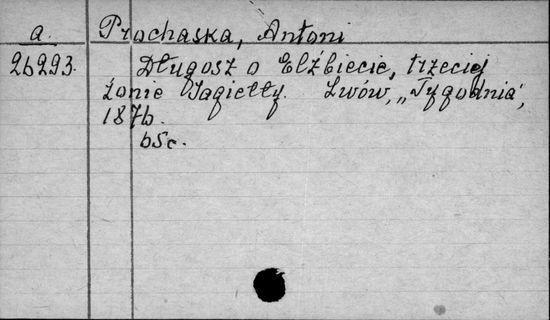 a. Prochaska, Antoni
26293. Długosz o Elżbiecie, trzeciej
żonie Jagiełły. Lwów, „Tygodnia",
1876.
bSc.